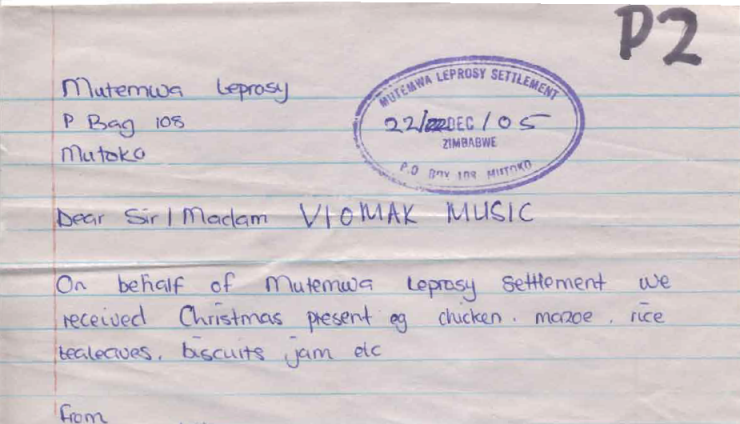 P2
Mutemwa Leprosy
P Bag 108
Mutoko
MUTEMWA LEPROSY SETTLEMENT
22/DEC/05
ZIMBABWE
P.O BOX 108 MUTOKO
Dear Sir/Madam VIOMAK MUSIC
On behalf of Mutemwa Leprosy Settlement we
received Christmas present eg chicken. mazoe. rice
tealeaves. biscuits jam etc
from